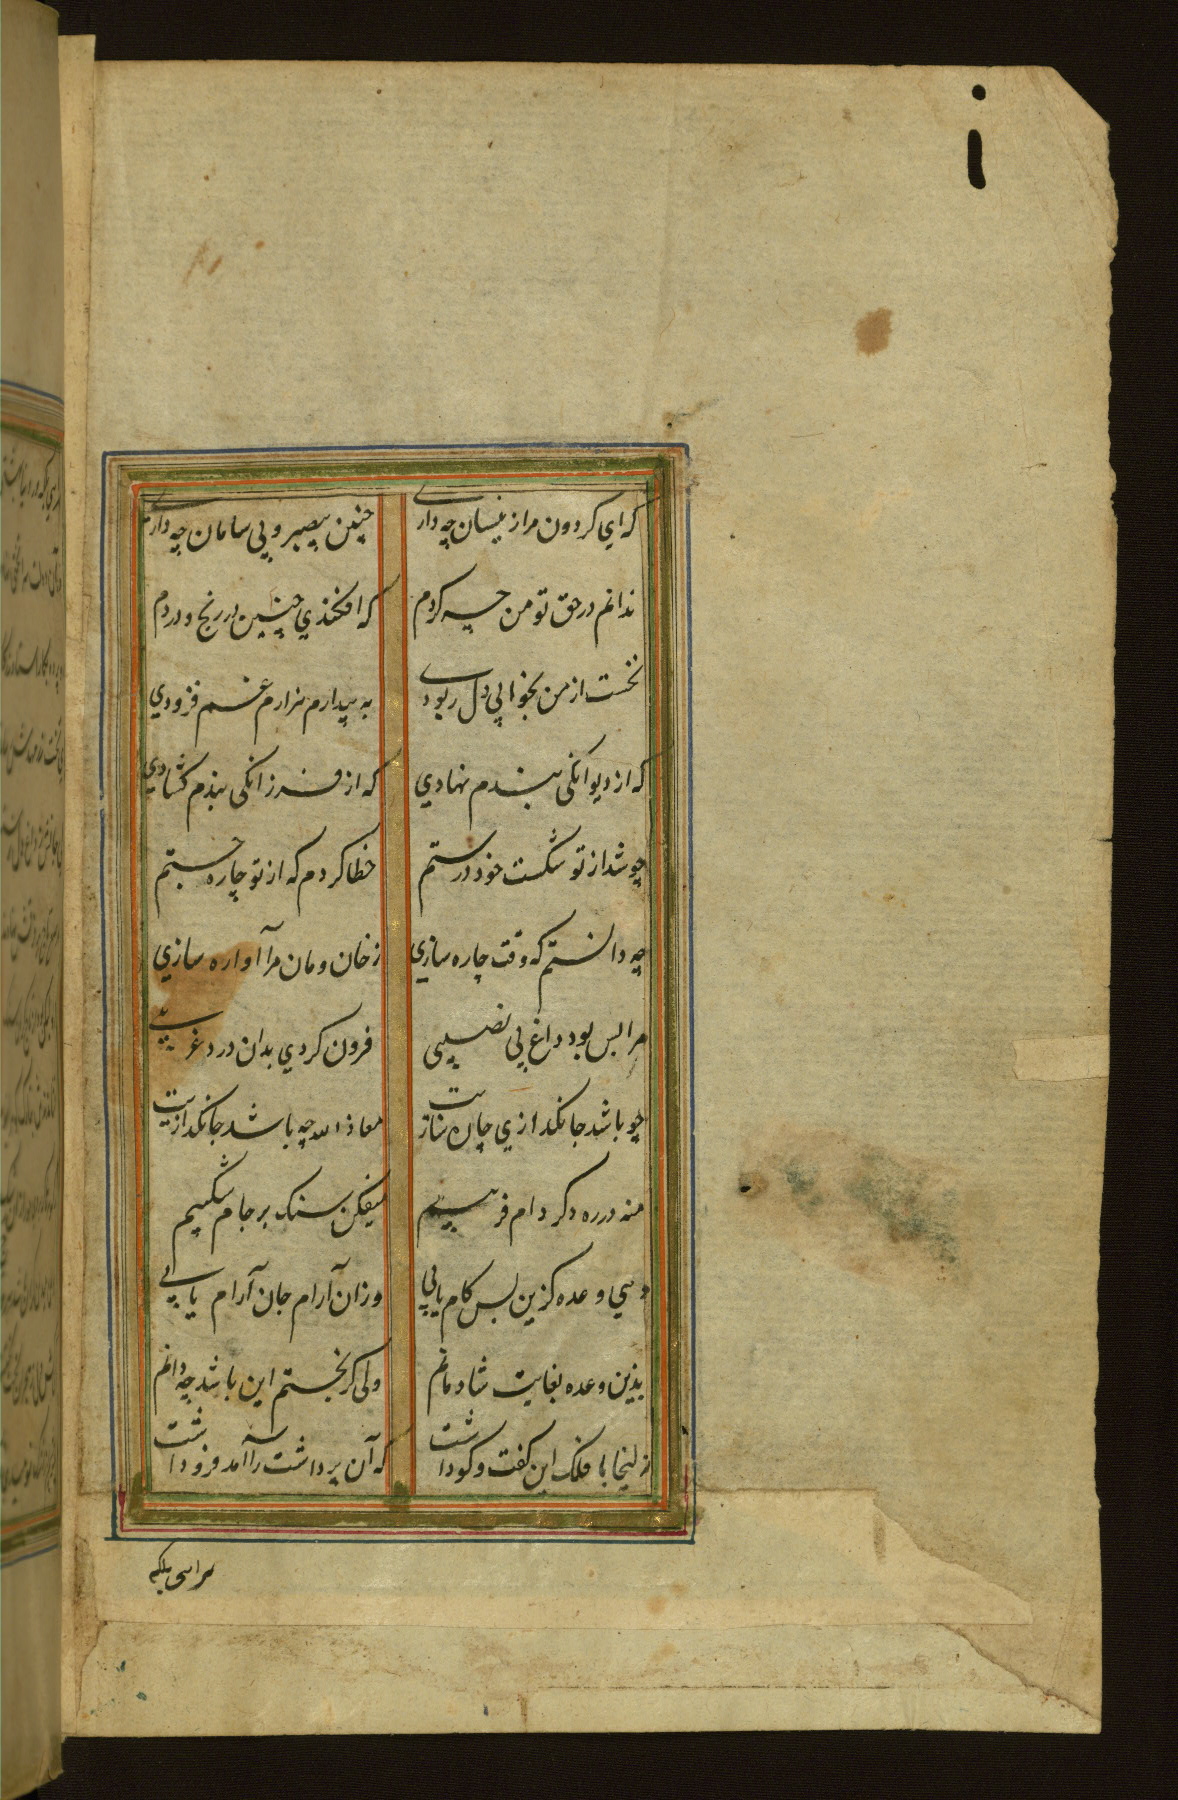 که اي کردون مرا زینسان چه داری چنین بیصبر و بی سامان چه داری
ندانم در حق تو من چه کردم که افکندي چنین در رنج و دردم
نخست از من بخوابی دل ربودی به بیدارم هزارم غم فزودي
که از دیوانکی بندم نهادي که از فرزانکی بندم کشادي
چو شد از تو شکست خود درستم خطا کردم که از تو چاره جستم
چه دانستم که وقت چاره سازي ز خان و مان مرا آواره سازي
مرا بس بود داغ بی نصیبی فزون کردي بدان درد غریبی
چو باشد جانکدازي چاره سازت معاذالله چه باشد جانکدازیت
منه در ره دکر دام فریبم میفکن سنک بر جام شکیبم
دهي وعده کزین پس کام یابی وزان آرام جان آرام یابی
بدین وعده بغایت شادمانم ولی کر بختم این باشد چه دانم
زلیخا با فلک این کفت و کو داشت که آن برداشت را آمد فرو داشت